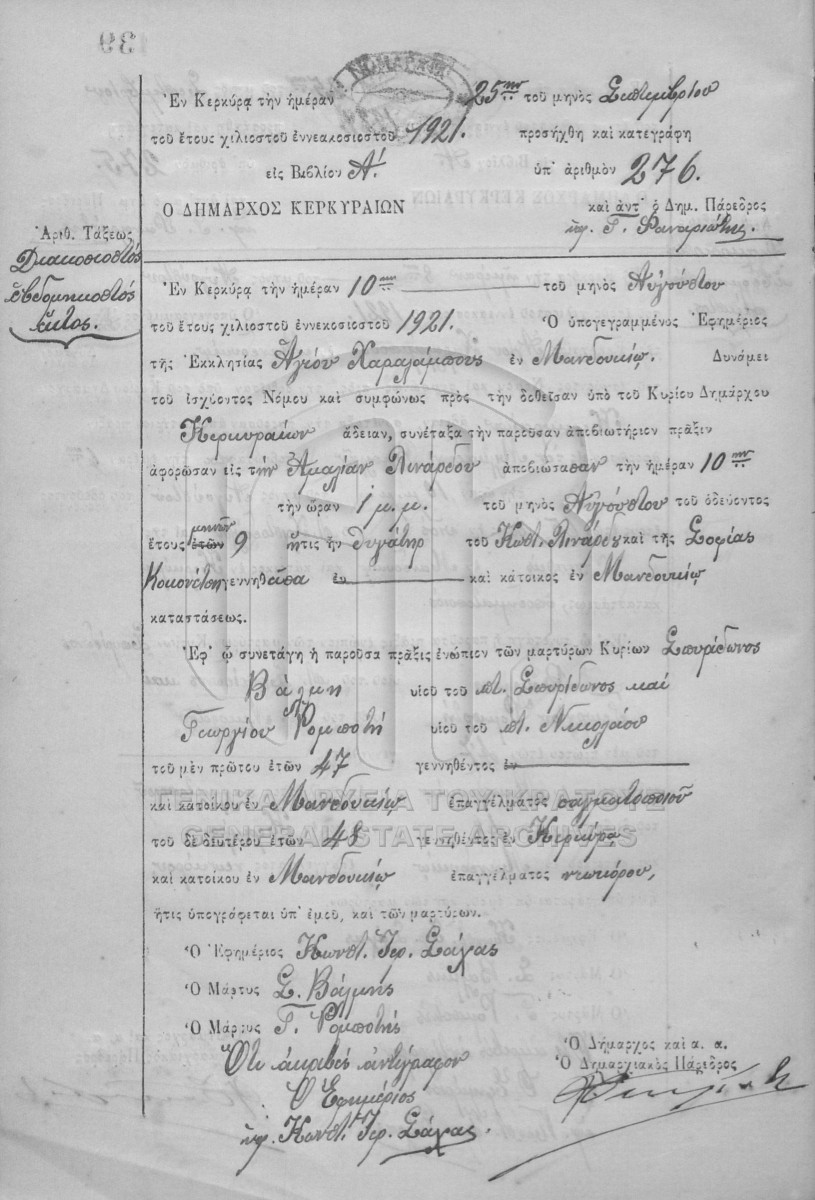 39
ΔΗΜΑΡΧΙΑ
Ἐν Κερκύρᾳ τὴν ἡμέραν 25ην τοῦ μηνὸς Σεπτεμβρίου
τοῦ ἔτους χιλιοστοῦ ἐννεακοσιοστοῦ 1921. προσήχθη καὶ κατεγράφη
εἰς Βιβλίον Α΄. ὑπ' ἀριθμὸν 276.
Ο ΔΗΜΑΡΧΟΣ ΚΕΡΚΥΡΑΙΩΝ καὶ ἀντ' ὁ Δημ. Πάρεδρος
ὑπ. Γ. Φαναριώτης.
Ἀριθ. Τάξεως
Διακοσιοστός
ἑβδομηκοστός
ἕκτος.
Ἐν Κερκύρᾳ τὴν ἡμέραν 10ην τοῦ μηνὸς Αὐγούστου
τοῦ ἔτους χιλιοστοῦ ἐννεκοσιοστοῦ 1921. Ὁ ὑπογεγραμμένος Ἐφημέριος
τῆς Ἐκκλησίας Ἁγίου Χαραλάμπους ἐν Μανδουκίῳ. Δυνάμει
τοῦ ἰσχύοντος Νόμου καὶ συμφώνως πρὸς τὴν δοθεῖσαν ὑπὸ τοῦ Κυρίου Δημάρχου
Κερκυραίων ἄδειαν, συνέταξα τὴν παροῦσαν ἀποβιωτήριον πρᾶξιν
ἀφορῶσαν εἰς τὴν Ἀμαλίαν Λινάρδου ἀποβιώσασαν τὴν ἡμέραν 10ην
τὴν ὥραν 1 μ.μ. τοῦ μηνὸς Αὐγούστου τοῦ ὁδεύοντος
ἔτους ἐτῶν μηνῶν 9 ἥτις ἦν θυγάτηρ τοῦ Κωστ. Λινάρδου καὶ τῆς Σοφίας
γεννηθεῖσα ἐν καὶ κάτοικος ἐν Μανδουκίῳ
καταστάσεως.
Ἐφ' ᾧ συνετάγη ἡ παροῦσα πρᾶξις ἐνώπιον τῶν μαρτύρων Κυρίων Σπυρίδωνος
Βάλμη υἱοῦ τοῦ ποτ. Σπυρίδωνος καὶ
Γεωργίου Ρομποτῆ υἱοῦ τοῦ ποτ. Νικολάου
τοῦ μὲν πρώτου ἐτῶν 47 γεννηθέντος ἐν
καὶ κατοίκου ἐν Μανδουκίῳ ἐπαγγέλματος σαγματοποιοῦ
τοῦ δὲ δευτέρου ἐτῶν 48 γεννηθέντος ἐν Κερκύρᾳ
καὶ κατοίκου ἐν Μανδουκίῳ ἐπαγγέλματος νεωκόρου,
ἥτις ὑπογράφεται ὑπ' ἐμοῦ, καὶ τῶν μαρτύρων.
Ὁ Ἐφημέριος Κωνστ. Ἱερ. Σάχας
Ὁ Μάρτυς Σ. Βάλμης
Ὁ Μάρτυς Γ. Ρομποτῆς
Ὅτι ἀκριβὲς ἀντίγραφον
Ὁ Ἐφημέριος
ὑπ. Κωνστ. Ἱερ. Σάχας.
Ὁ Δήμαρχος καὶ α. α.
Ὁ Δημαρχιακὸς Πάρεδρος
ΓΕΝΙΚΑ ΑΡΧΕΙΑ ΤΟΥ ΚΡΑΤΟΥΣ
GENERAL STATE ARCHIVES